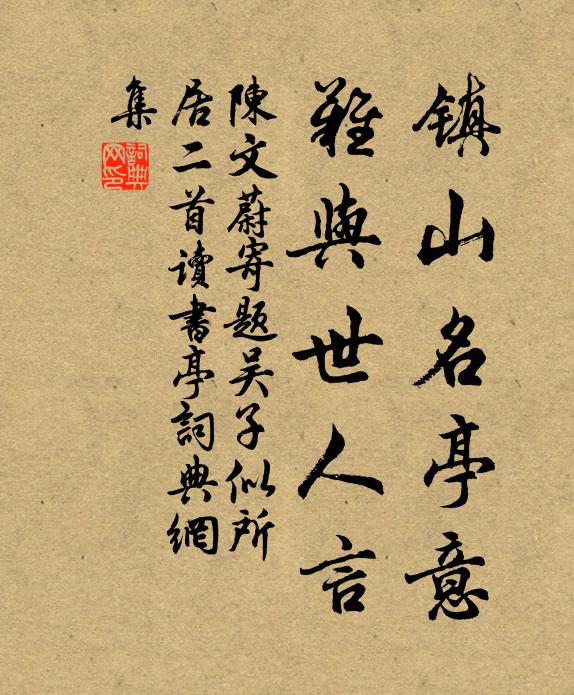 镇山名亭意
難與世人言
陳文蔚寄题吴子似所
居二首讀書亭詞典網
集
詞典
网印